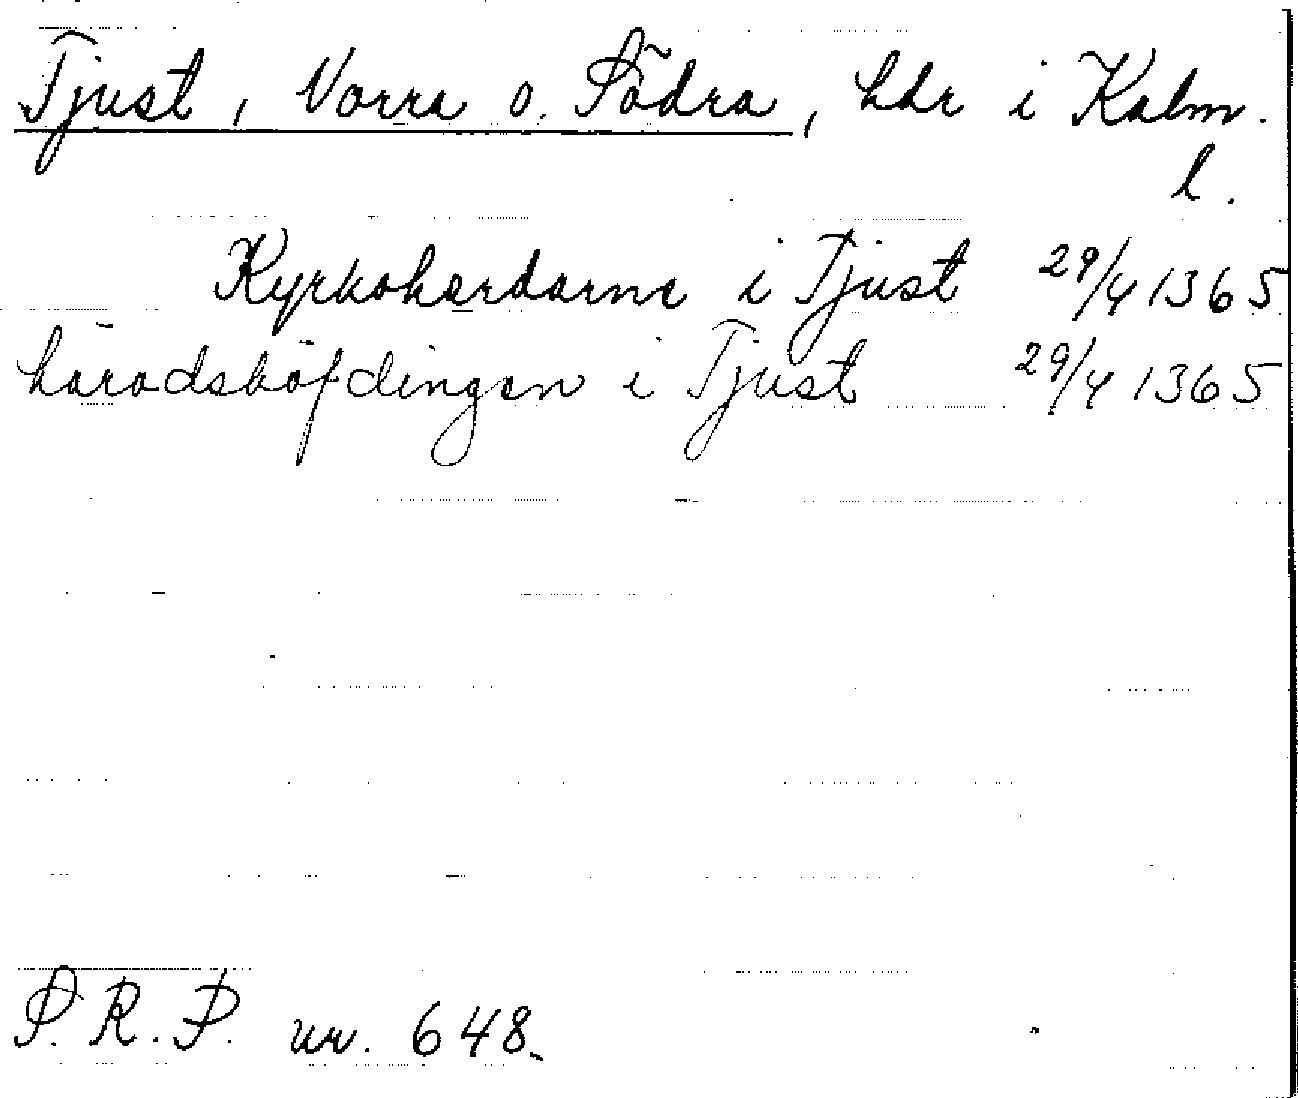 Tjust, Norra o. Södra, hdr i Kalm.
l.
Kyrkoherdarne i Tjust 29/4 1365
häradshöfdingen i Tjust 29/4 1365
S. R. P. nr. 648.